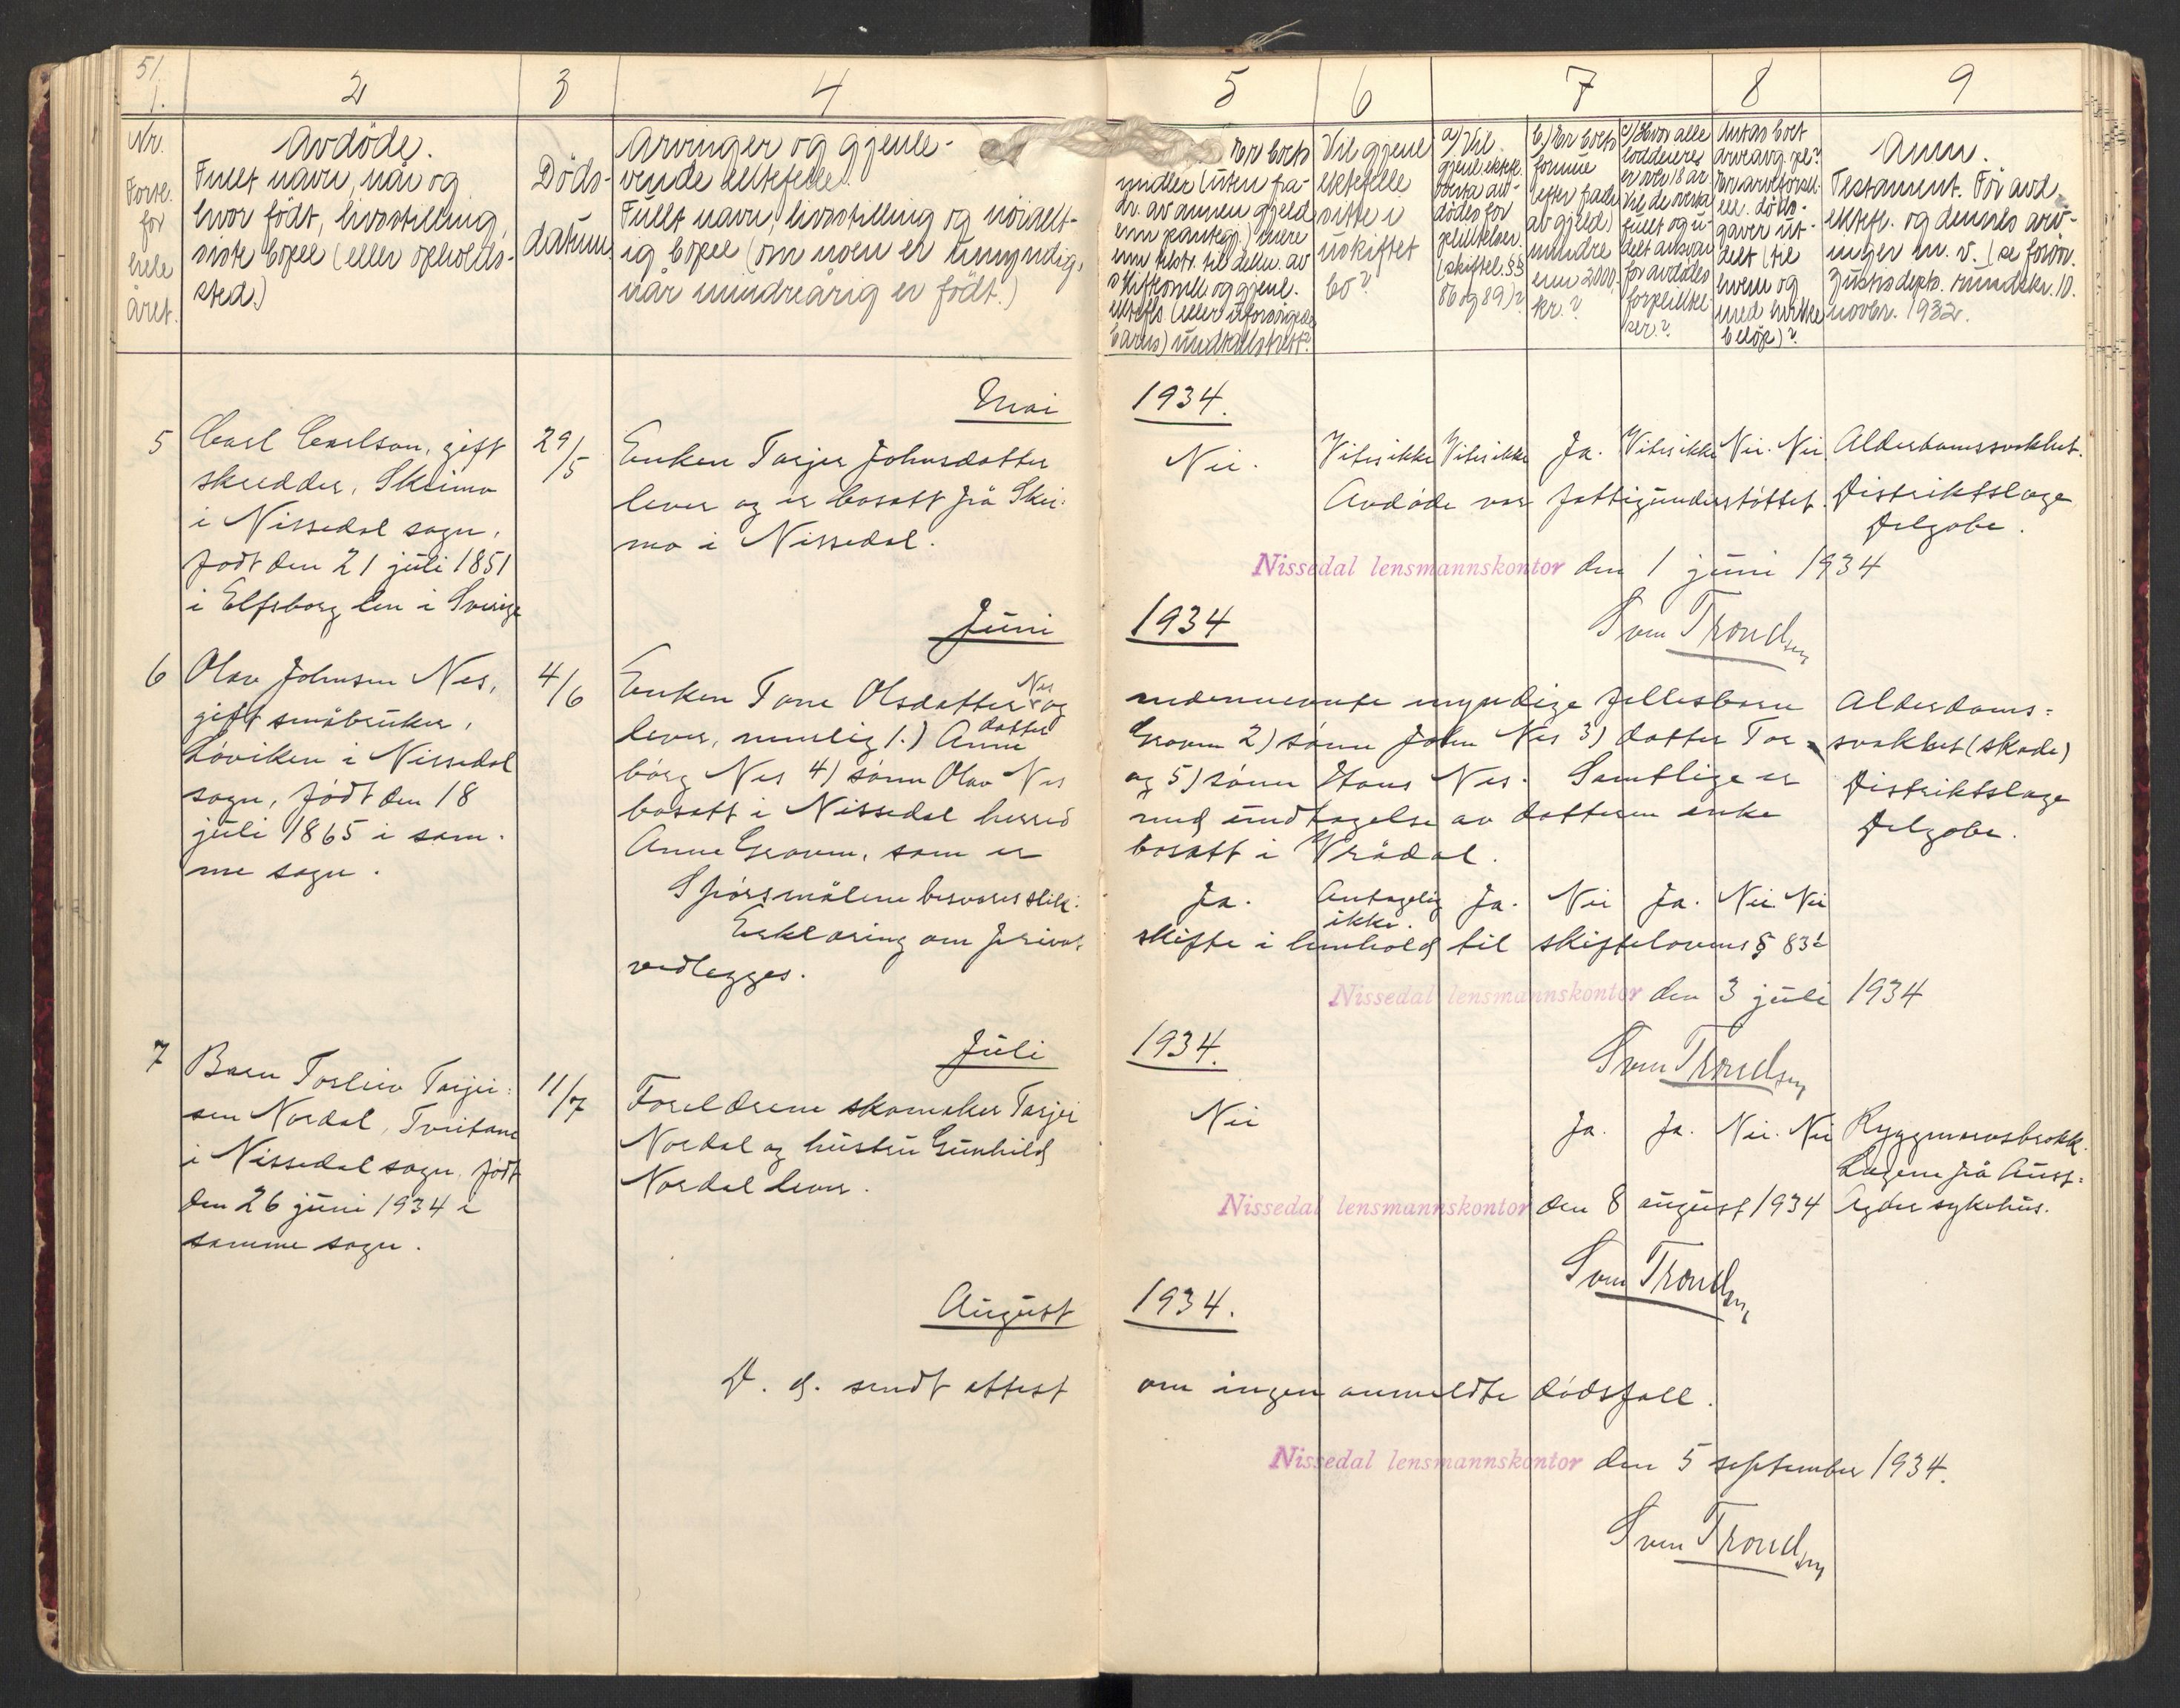 51.
1.
2
3
4
5
6
7
8
9
Nr.
Fortl.
for
hele
året.
Avdöde.
Fullt navn, når og
hvor født, livsstilling,
siste bopel (eller opholds-
sted.)
Döds-
datum
Arvinger og gjenle-
vende ektefelle.
Fullt navn, livsstilling og nöiakt-
ig bopel (om noen er umyndig,
når mindreårig er født.)
Er boets
midler (uten fra-
dr. av annen gjeld
enn pantegj.) mere
enn
skifteomk. og gjenl.
ektefls (eller uforsörgede
barns)
Vil gjenl
ektefelle
sitte i
uskiftet
bo?
a) Vil
gjenl. ektef.
overta av-
dödes for
pliktelser
(skiftel. §§
86 og 89)?
b) Er boets
formue
(efter fradr
av gjeld)
mindre
enn 2000
kr.?
c) Hvor alle
loddeiere
er over 18 år
vil de overta
fullt og u-
delt ansvar
for avdödes
forpliktel-
ser?
Antas boet
arveavg. pl?
Er arveforsk.
ell. döds-
gaver ut-
delt (til
hvem og
med hvilke
belöp)?
Anm.
Testament. För avd.
ektef. og dennes arv-
inger m. v. (se forövr.
Justisdepts. rundskr. 10.
novbr. 1932.
Mai 1934.
5
Carl Carlson, gift
skredder, Skeimo
i Nissedal sogn,
født den 21 juli 1851
i Elfsborg len i Sverige
29/5
Enken Tarjer Johnsdatter
lever og er bosatt på Skei-
mo i Nissedal.
Nei. Vites ikke Vites ikke Ja. Vites ikke Nei. Nei. Alderdomssvakhet.
Avdöde var fattigunderstöttet. Distriktslæge
Felgobe.
Nissedal lensmannskontor den 1 juni 1934
Sven Trondsen
Juni 1934
6
Olav Johnsen Nes,
gift småbruker,
Löviken i Nissedal
sogn, født den 18
juli 1865 i sam-
me sogn.
4/6
Enken Tone Olsdatter Nes og nedennevnte myndige fellesbarn
lever, nemlig 1.) datter Anne Graven 2) sönn John Nes 3) datter Tor-
börg Nes 4) sönn Olav Nes og 5) sönn Hans Nes. Samtlige er
bosatt i Nissedal herred med undtagelse av datteren enke
Anne Graven, som er bosatt i Vrådal.
Alderdoms-
svakhet (skade)
Distriktslæge
Felgobe.
Spörsmålene besvares slik: Ja. Antagelig ikke. Ja. Nei Ja. Nei. Nei
Erklæring om privat skifte i henhold til skiftelovens § 83
vedlegges.
Nissedal lensmannskontor den 3 juli 1934
Sven Trondsen
Juli 1934.
7
Barn Torleiv Tarjei-
sen Nordal, Tveitane
i Nissedal sogn, født
den 26 juni 1934 i
samme sogn.
11/7
Foreldrene skomaker Tarjei
Nordal og hustru Gunhild
Nordal lever.
Nei Ja. Ja. Nei. Nei Ryggmarvsbrokk.
Lægene på Aust-
Agder sykehus.
Nissedal lensmannskontor den 8 august 1934
Sven Trondsen
August 1934.
D. d. sendt attest om ingen anmeldte dödsfall.
Nissedal lensmannskontor den 5 september 1934.
Sven Trondsen